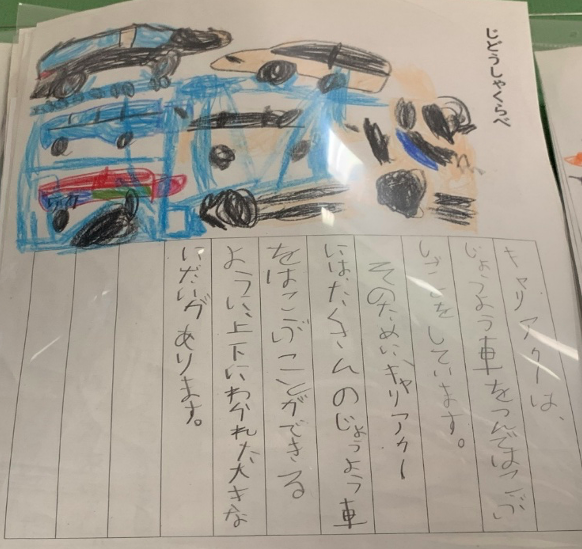 じどうしゃくらべ
キャリアカーは、
じょうよう車をつんではこぶ
しごとをしています。
そのために、キャリアカー
にはたくさんのじょうよう車
をはこぶことができる
ように、上下にわかれた大きな
にだいがあります。